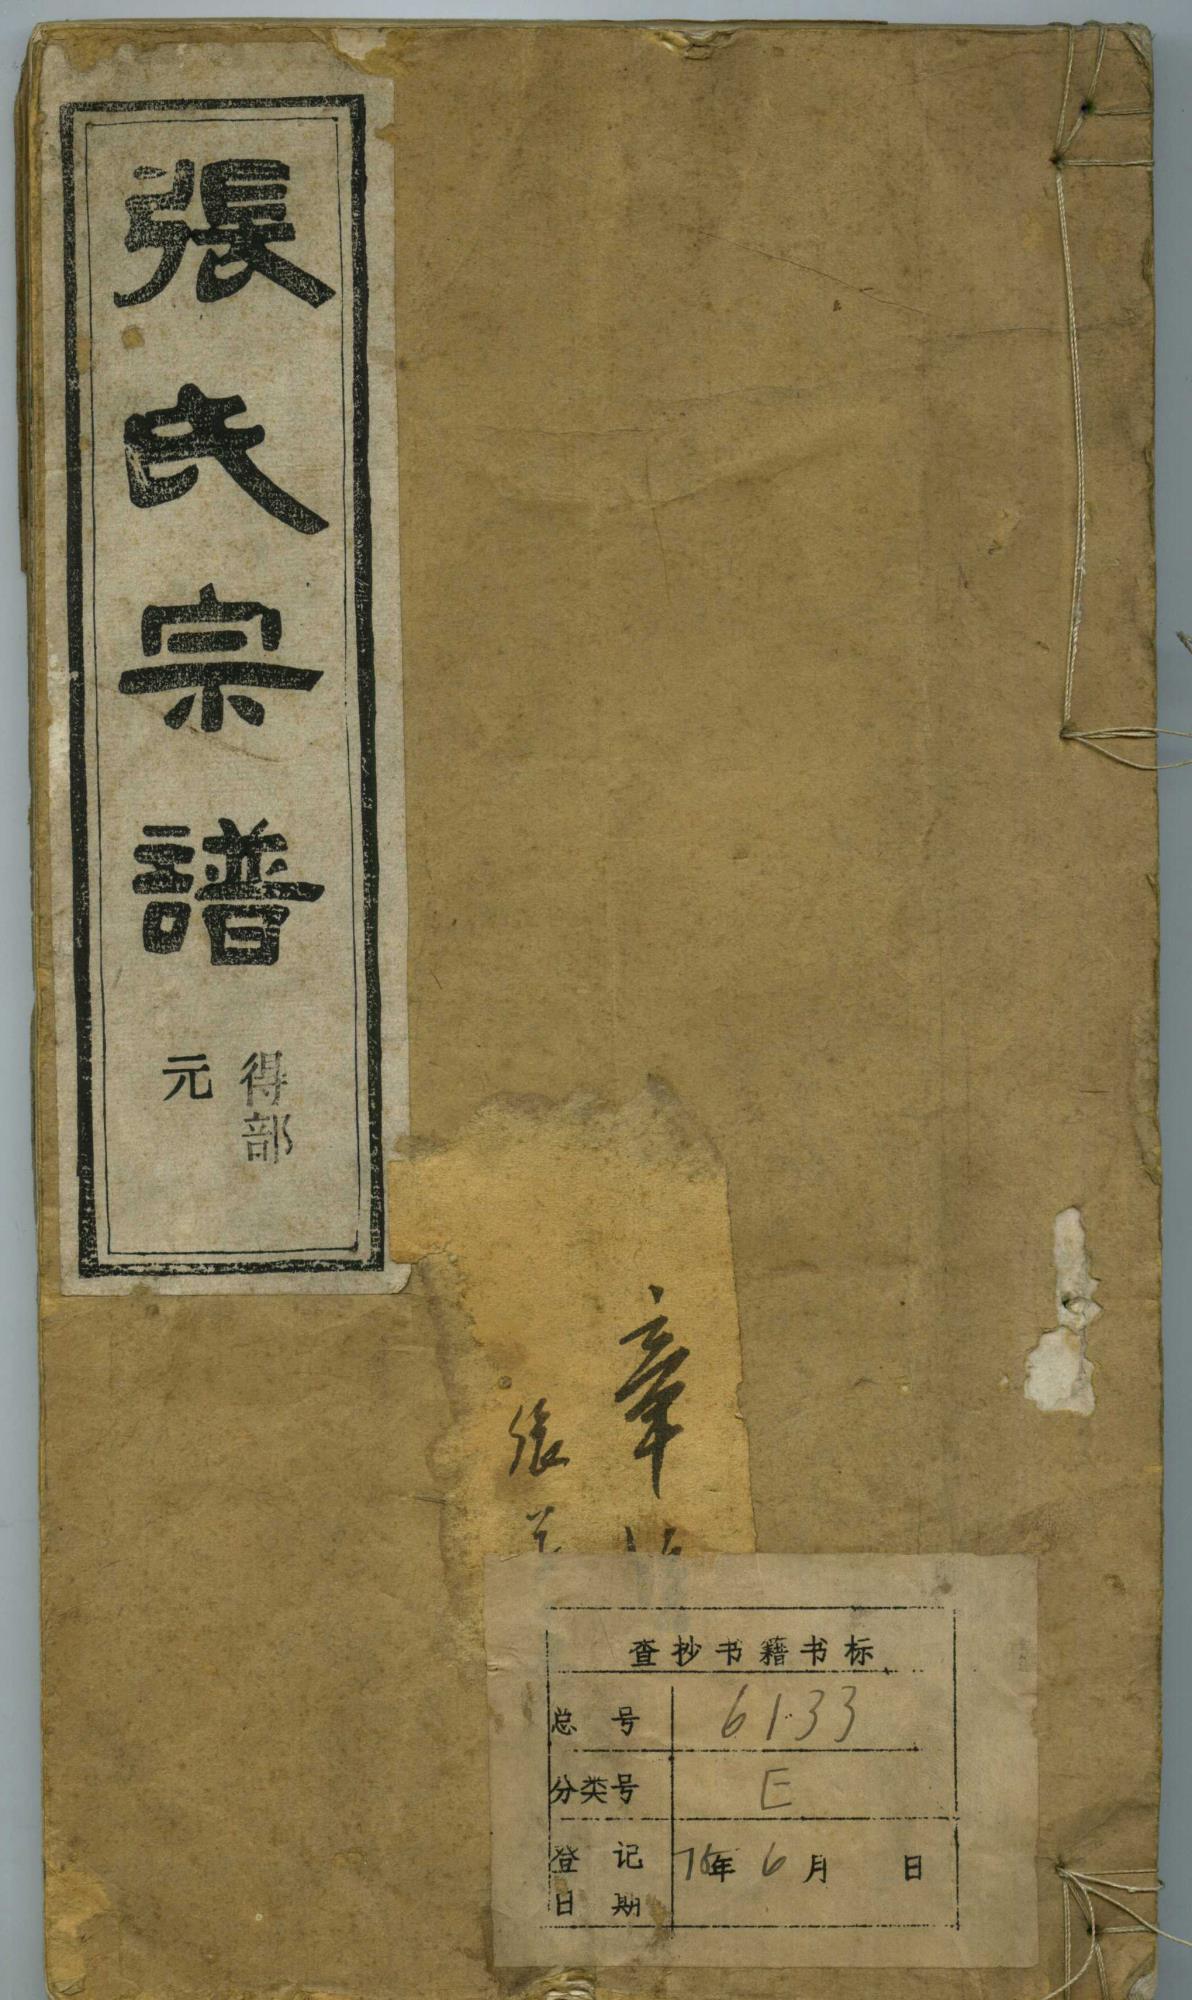 張氏宗譜
得部
元
章
張
查抄书籍书标
总号 6133
分类号 E
登记日期 76年6月 日